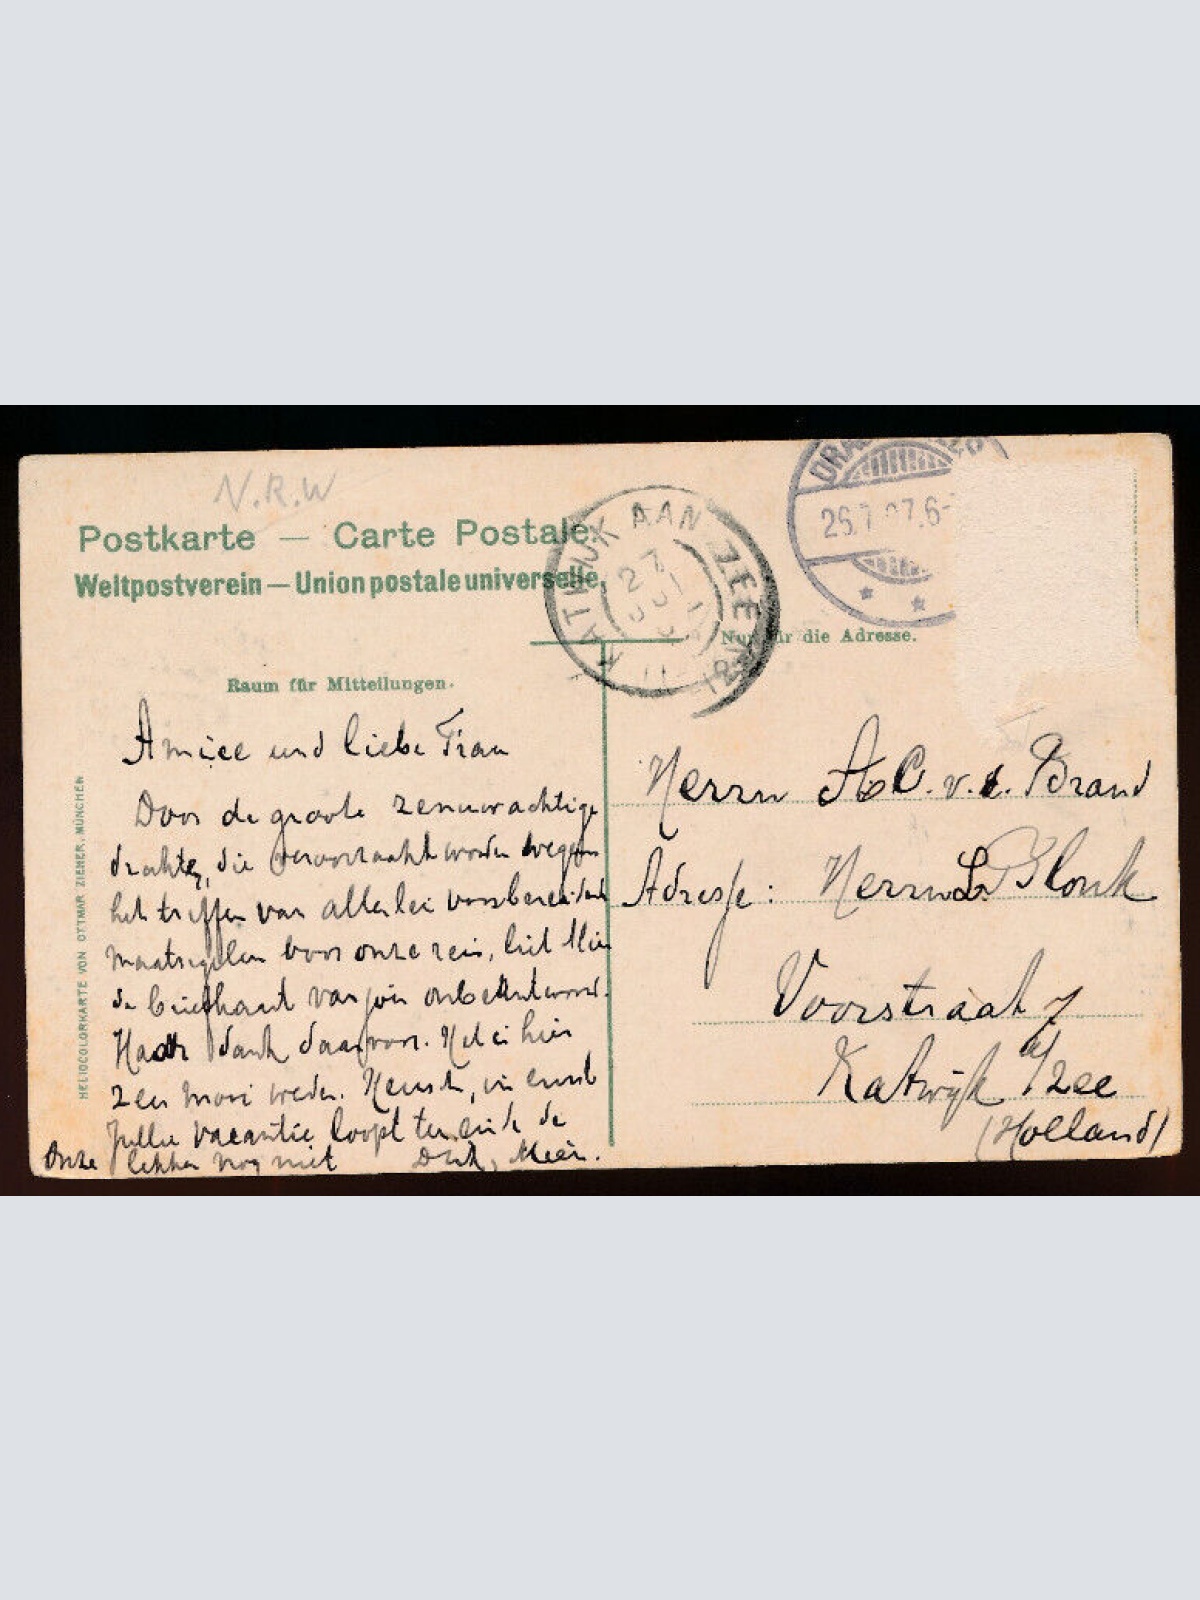 N.R.W
Postkarte — Carte Postale.
Weltpostverein — Union postale universelle.
KATWIJK AAN ZEE
27
25.7.07.6-
Nur für die Adresse.
Raum für Mitteilungen.
HELIOCOLORKARTE VON OTTMAR ZIEHER, MÜNCHEN
Amice und liebe Frau
Door de groote zenuwachtige
drukte, die veroorzaakt worden wegens
het treffen van allerlei voorbereidende
maatregelen voor onze reis, liet Mien
de briefkaart van jou onbeantwoord.
dank daarvoor. Het is hier
zeer mooi weder. Heusch,
Jullie vacantie loopt ten einde de
Onze lekker nog niet Dirk, Mien.
Herrn A.C. v. d. Brand
Adresse: Herrn L. Blonk
Voorstraat 7
Katwijk a/zee
(Holland)